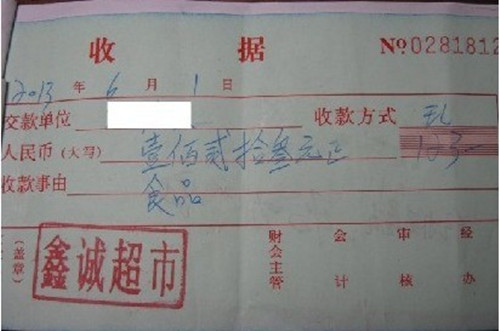 收据 №0281812
2013 年 6 月 1 日
交款单位 收款方式
人民币（大写） 壹佰贰拾叁元正 123—
收款事由 食品
（盖章） 鑫诚超市 财会主管 会计 审核 经办